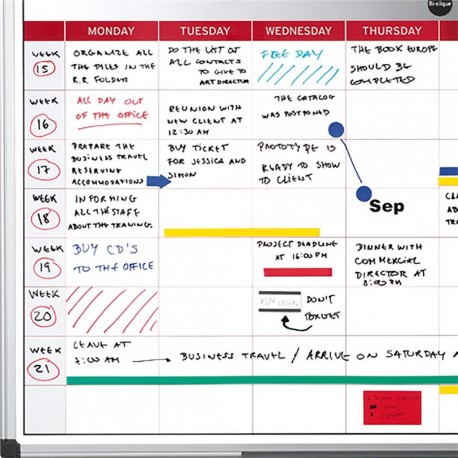 Bi-silque
MONDAY TUESDAY WEDNESDAY THURSDAY
WEEK
15
ORGANIZE ALL
THE FILES IN THE
R.R FOLDER
DO THE LIST OF
ALL CONTACTS
TO GIVE TO
ART DIRECTOR
FREE DAY
THE BOOK EUROPE
SHOULD BE
COMPLETED
WEEK
16
ALL DAY OUT
OF THE OFFICE
REUNION WITH
NEW CLIENT AT
12:30 AM
THE CATALOG
WAS POSTPONED
WEEK
17
PREPARE THE
BUSINESS TRAVEL
RESERVING
ACCOMMODATIONS
BUY TICKET
FOR JESSICA AND
SIMON
PROTOTYPE IS
READY TO SHOW
TO CLIENT
Sep
WEEK
18
INFORMING
ALL THE STAFF
ABOUT THE TRAINING.
WEEK
19
BUY CD'S
TO THE OFFICE
PROJECT DEADLINE
AT 16:00 PM
DINNER WITH
COMMERCIAL
DIRECTOR AT
8:00 PM
WEEK
20
DON'T
FORGET
WEEK
21
LEAVE AT
7:00 AM
BUSINESS TRAVEL / ARRIVE ON SATURDAY